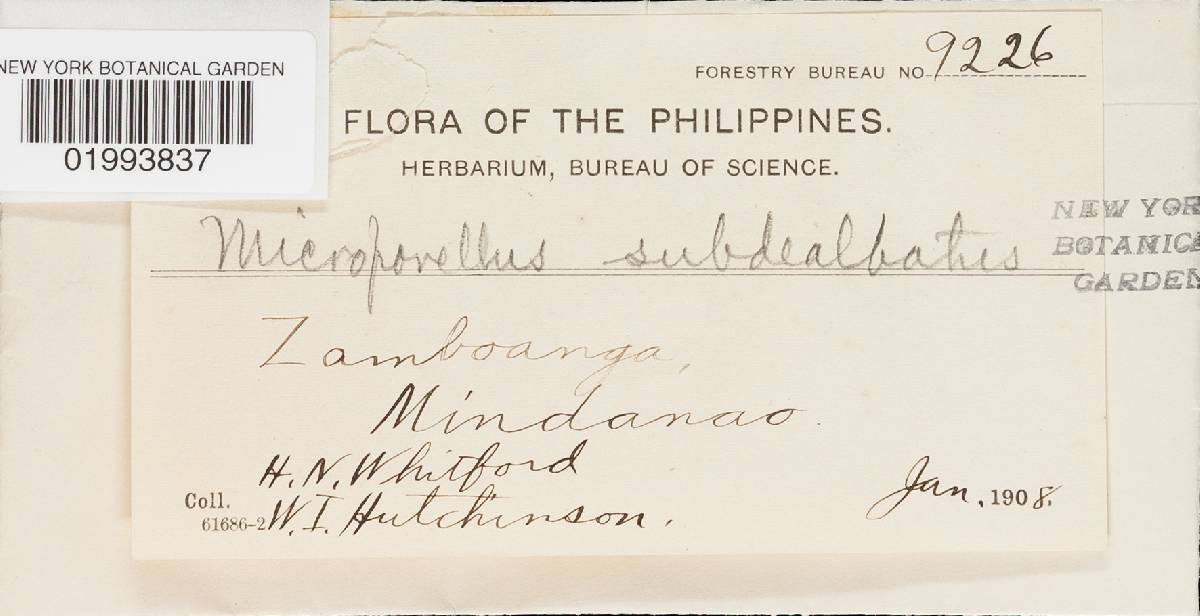 NEW YORK BOTANICAL GARDEN
01993837
FORESTRY BUREAU NO. 9226
FLORA OF THE PHILIPPINES.
HERBARIUM, BUREAU OF SCIENCE.
Microporellus subdealbatus
NEW YOR
BOTANICA
GARDEN
Zamboanga,
Mindanao.
H. N. Whitford
Coll.
61686-2 W. I. Hutchinson.
Jan. 1908.